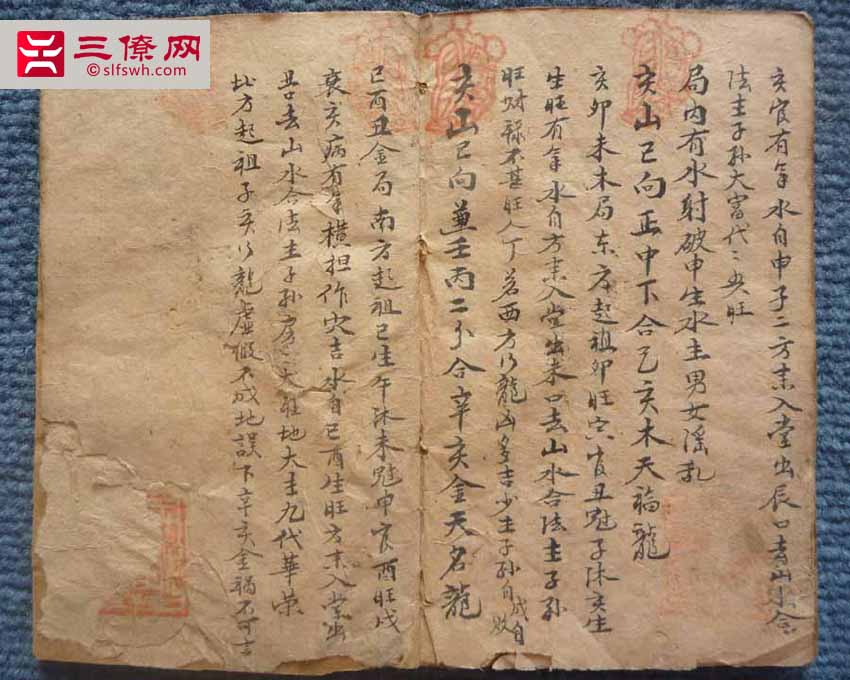 三僚网
©slfswh.com
亥官有年水自申子二方来入堂出辰口去山水合
法主子孙大富代二兴旺
局内有水射破申生水主男女淫乱
亥山巳向正中下合乙亥木天福龍
亥卯未木局东方起祖卯旺寅官丑冠子沐亥生
生旺有年水自方来入堂出未口去山水合法主子孙
旺财禄不甚旺人丁若西方行龍凶多吉少主子孙自成自败
亥山巳向兼壬丙二分合辛亥金天名龍
巳酉丑金局南方起祖巳生午沐未冠申官酉旺戌
衰亥病有年横担作穴吉水自巳酉生旺方来入堂出
去山水合法主子孙房二大旺地大主九代華荣
北方起祖子亥行龍虚假不成地誤下辛亥金禍不可言